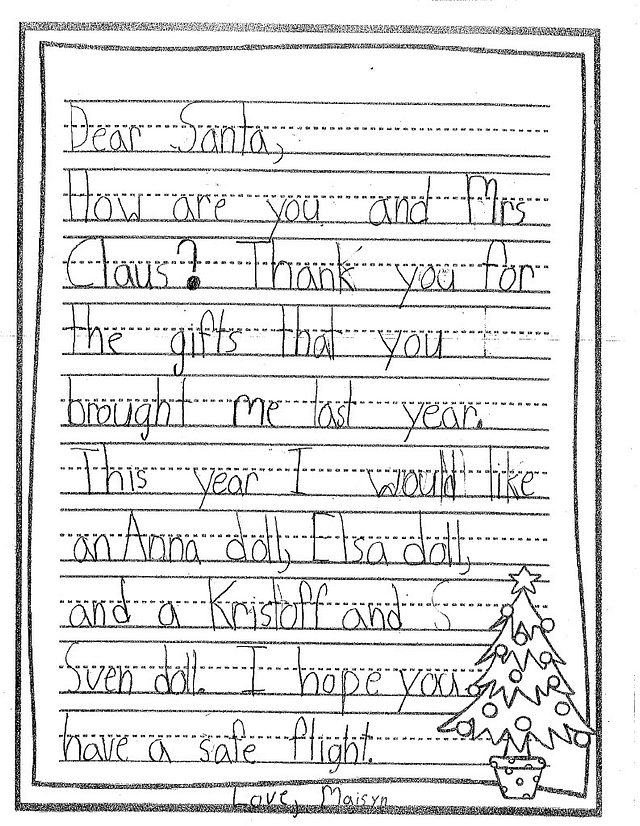 Dear Santa,
How are you and Mrs
Claus? Thank you for
the gifts that you
brought me last year.
This year I would like
an Anna doll, Elsa doll,
and a Kristoff and S
Sven doll. I hope you
have a safe flight.
Love, Maisyn